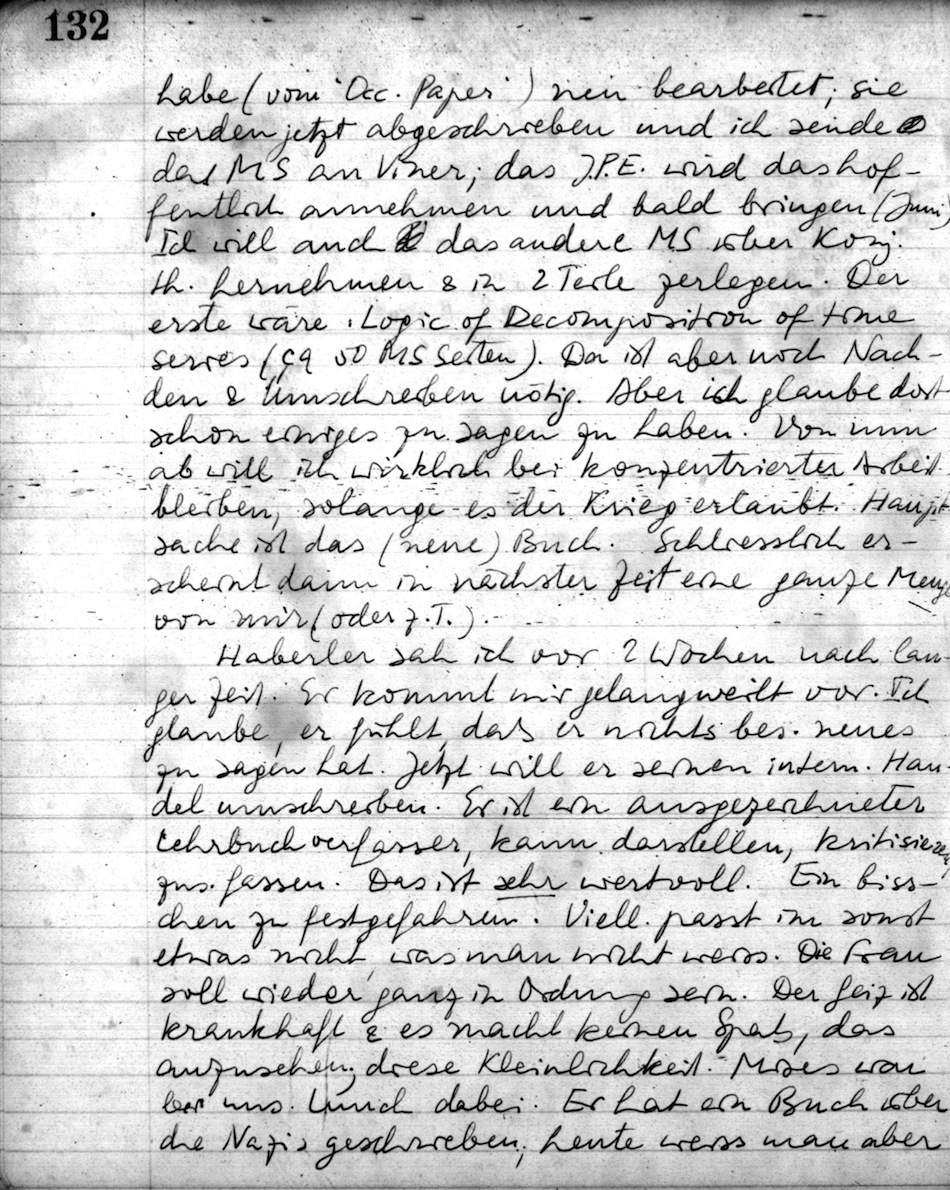 132
habe (vom 'Occ. Paper') neu bearbeitet; sie
werden jetzt abgeschrieben und ich sende
das MS an Viner; das J.P.E. wird das hof-
fentlich annehmen und bald bringen (Juni)
Ich will auch das andere MS über Konj.
th. hernehmen & in 2 Teile zerlegen. Der
erste wäre: Logic of Decomposition of time
series (MS Seiten). Da ist aber noch Nach-
den & Umschreiben nötig. Aber ich glaube dort
schon einiges zu sagen zu haben. Von nun
ab will ich wirklich bei konzentrierter Arbeit
bleiben, solange es der Krieg erlaubt. Haupt
sache ist das (neue) Buch. Schliesslich er-
scheint dann in nächster Zeit eine ganze Menge
von mir (oder z.T.).
Haberler sah ich vor 2 Wochen nach lan-
ger Zeit. Er kommt mir gelangweilt vor. Ich
glaube, er fühlt, dass er nichts bes. neues
zu sagen hat. Jetzt will er seinen intern. Han-
del umschreiben. Er ist ein ausgezeichneter
Lehrbuchverfasser, kann darstellen, kritisieren,
zus. fassen. Das ist sehr wertvoll. Ein biss-
chen zu festgefahren. Viell. passt im sonst
etwas nicht, was man nicht weiss. Die Frau
soll wieder ganz in Ordnung sein. Der Geiz ist
krankhaft & es macht keinen Spass, das
anzusehen, diese Kleinlichkeit. Moses war
bei uns. Lunch dabei. Er hat ein Buch über
die Nazis geschrieben; heute weiss man aber